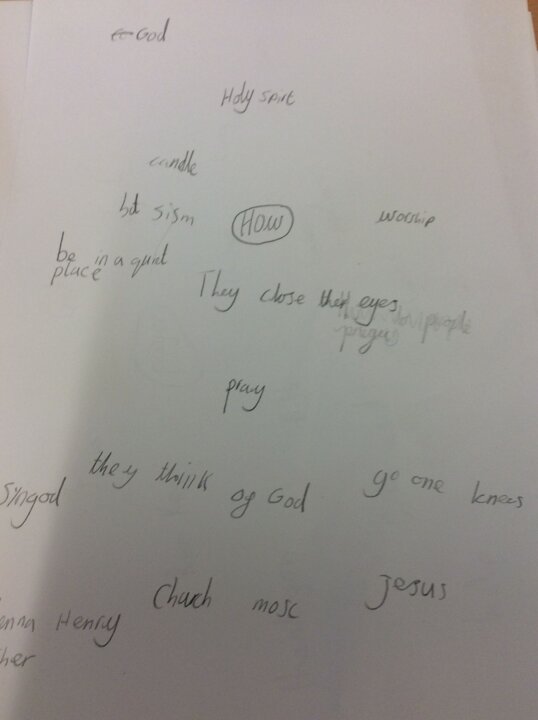 God
Holy spirt
candle
bat sism
How
worship
be in a quiet
place
They close ther eyes
people
pray
they think
of God
go one knees
Syngod
Church
mosc
Jesus
enna Henry
her